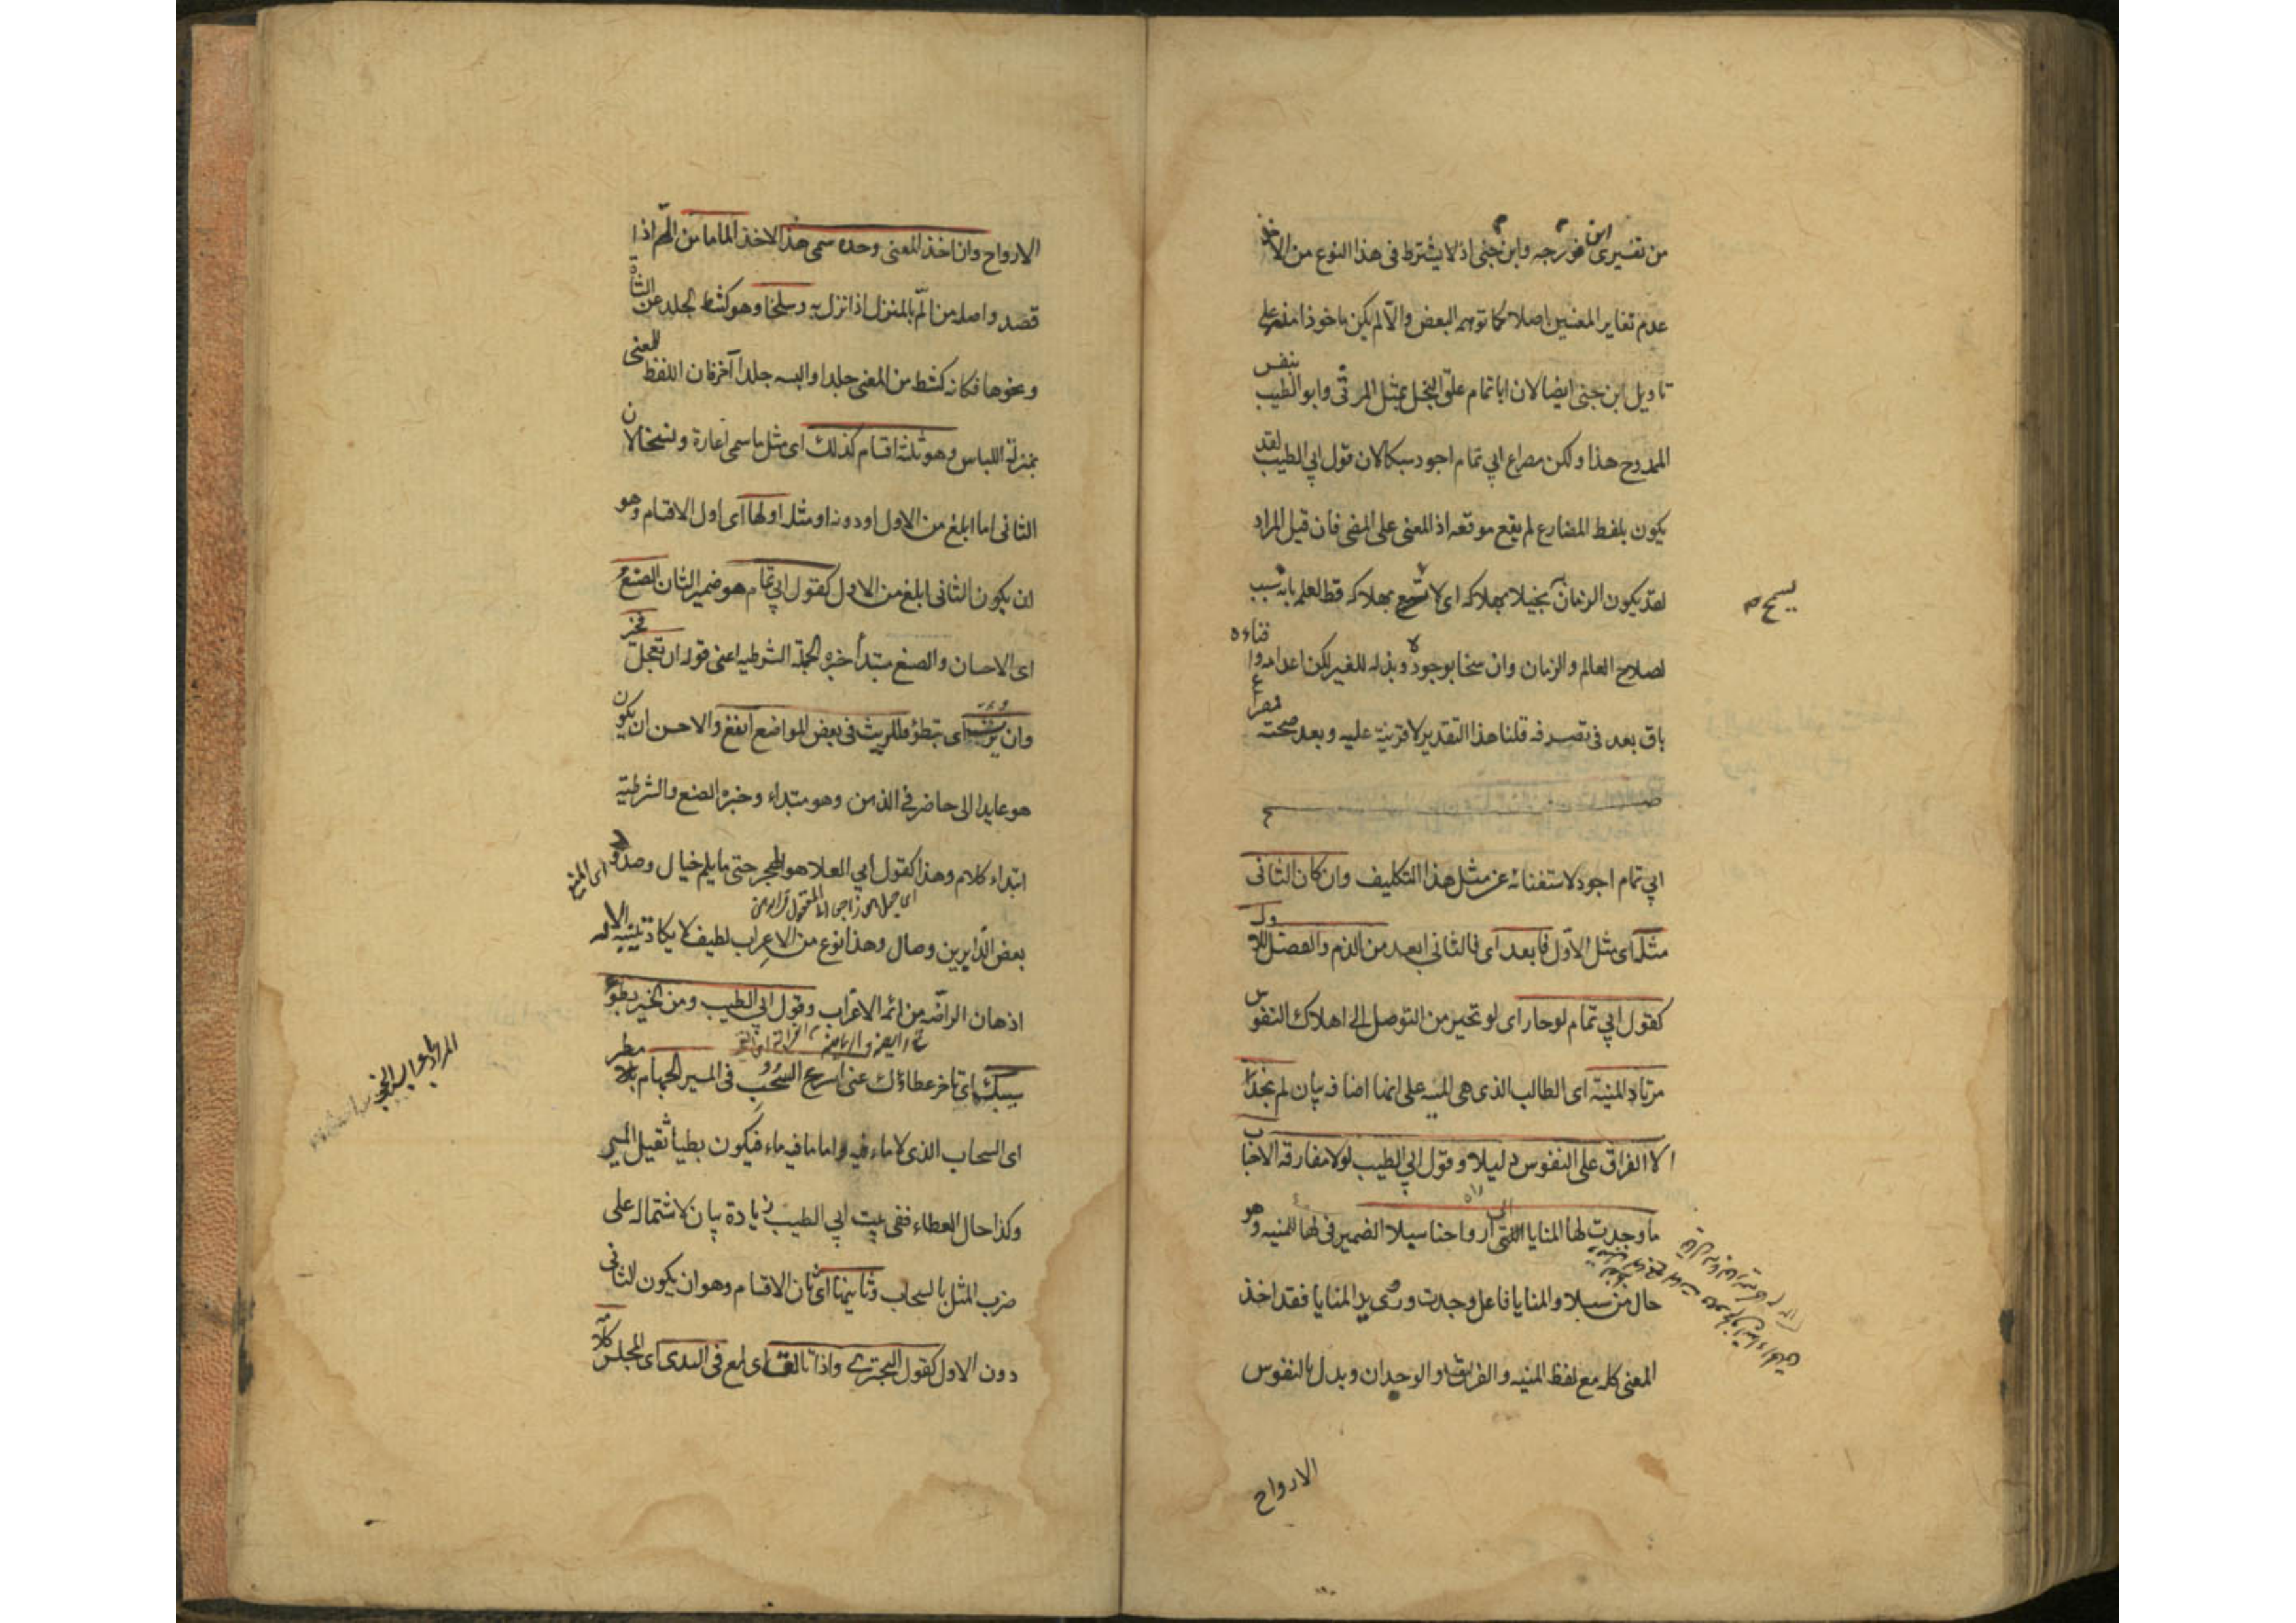 من تفسيرى ابن فورجه وابن جنى اذ لا يشترط فى هذا النوع من الاخذ
عدم تغاير المعنيين اصلا كما توهمه البعض والا لم يكن ماخوذا منه على
تاويل ابن جنى ايضا لان ابا تمام علق البخل بمثل المرثى وابو الطيب بنفس
الممدوح هذا ولكن مصراع ابي تمام اجود سبكا لان قول ابي الطيب لقد
يكون بلفظ المضارع لم يقع موقعه اذ المعنى على المضى فان قيل المراد
لقد يكون الزمان بخيلا بهلاكه اى لا يسمح بهلاكه قط لعلمه بانه سبب
يسمح
لصلاح العالم والزمان وان سخا بوجوده وبذله للغير لكن اعدامه وافناءه
باق بعد فى تصرفه قلنا هذا التقدير لا قرينة عليه وبعد صحته فمصراع
ابي تمام اجود لاستغنائه عن مثل هذا التكليف وان كان الثانى
مثله اى مثل الاول فابعد اى فالثانى ابعد من الذم والفضل للاول
كقول ابي تمام لو حار اى لو تحير من التوصل الى اهلاك النفوس
مرتاد المنية اى الطالب الذى هى المنيه على انها اضافه بيان لم يجد
الا الفراق على النفوس دليلا وقول ابي الطيب لولا مفارقة الاحباب
ما وجدت لها المنايا الى ارواحنا سبلا الضمير فى لها للمنيه وهو
حال من سبلا والمنايا فاعل وجدت وروى يد المنايا فقد اخذ
المعنى كله مع لفظ المنيه والفراق والوجدان وبدل بالنفوس
الارواح
الارواح وان اخذ المعنى وحده سمى هذا الاخذ الماما من الم اذا
قصد واصله من الم بالمنزل اذا نزل به وسلخا وهو كشط الجلد عن الشاة
ونحوها فكانه كشط من المعنى جلدا والبسه جلدا آخر فان اللفظ للمعنى
بمنزلة اللباس وهو ثلثة اقسام كذلك اى مثل ما سمى اغارة ونسخا لان
الثانى اما ابلغ من الاول او دونه او مثله اولها اى اول الاقسام وهو
ان يكون الثانى ابلغ من الاول كقول ابي تمام هو ضمير الشان الصنع
اى الاحسان والصنع مبتدأ خبره الجملة الشرطيه اعنى قوله ان تعجل فخير
وان يرث اى تبطؤ فللريث فى بعض المواضع انفع والاحسن ان يكون
هو عايدا الى حاضر فى الذهن وهو مبتداء وخبره الصنع والشرطية
ابتداء كلام وهذا كقول ابي العلا هو الهجر حتى ما يلم خيال وصدود
بعض الزايرين وصال وهذا نوع من الاعراب لطيف لا يكاد يتنبه له الا
اذهان الراضه من ائمة الاعراب وقول ابي الطيب ومن الخير بطؤ
سيبك اى تاخر عطاؤك عنى اسرع السحب فى المسير الجهام
اى السحاب الذى لا ماء فيه واما ما فيه ماء فيكون بطيا ثقيل المسير
وكذا حال العطاء ففى بيت ابي الطيب زيادة بيان لاشتماله على
ضرب المثل بالسحاب وثانيها اى ثان الاقسام وهو ان يكون الثانى
دون الاول كقول البحترى واذا تالق اى لمع فى الندى اى المجلس كلام